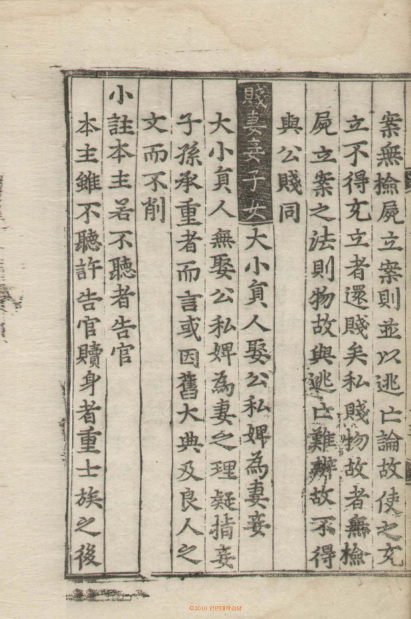 案無撿屍立案則並以逃亡論故使之充
立不得充立者還賤矣私賤物故者無檢
屍立案之法則物故與逃亡難辨故不得
與公賤同
賤妻妾子女 大小貟人娶公私婢為妻妾
大小貟人無娶公私婢為妻之理疑指妾
子孫承重者而言或因舊大典及良人之
文而不削
小註本主若不聽者告官
本主雖不聽許告官贖身者重士族之後